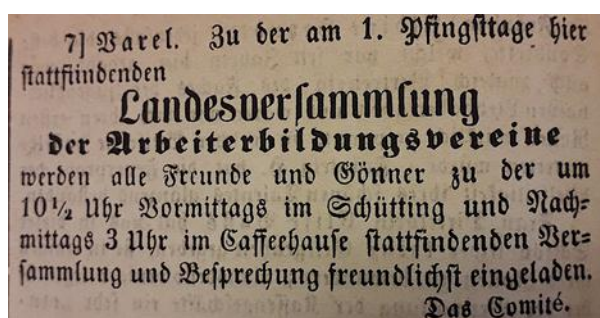 7] Varel. Zu der am 1. Pfingsttage hier
stattfindenden
Landesversammlung
der Arbeiterbildungsvereine
werden alle Freunde und Gönner zu der um
10½ Uhr Vormittags im Schütting und Nach-
mittags 3 Uhr im Caffeehause stattfindenden Ver-
sammlung und Besprechung freundlichst eingeladen.
Das Comité.